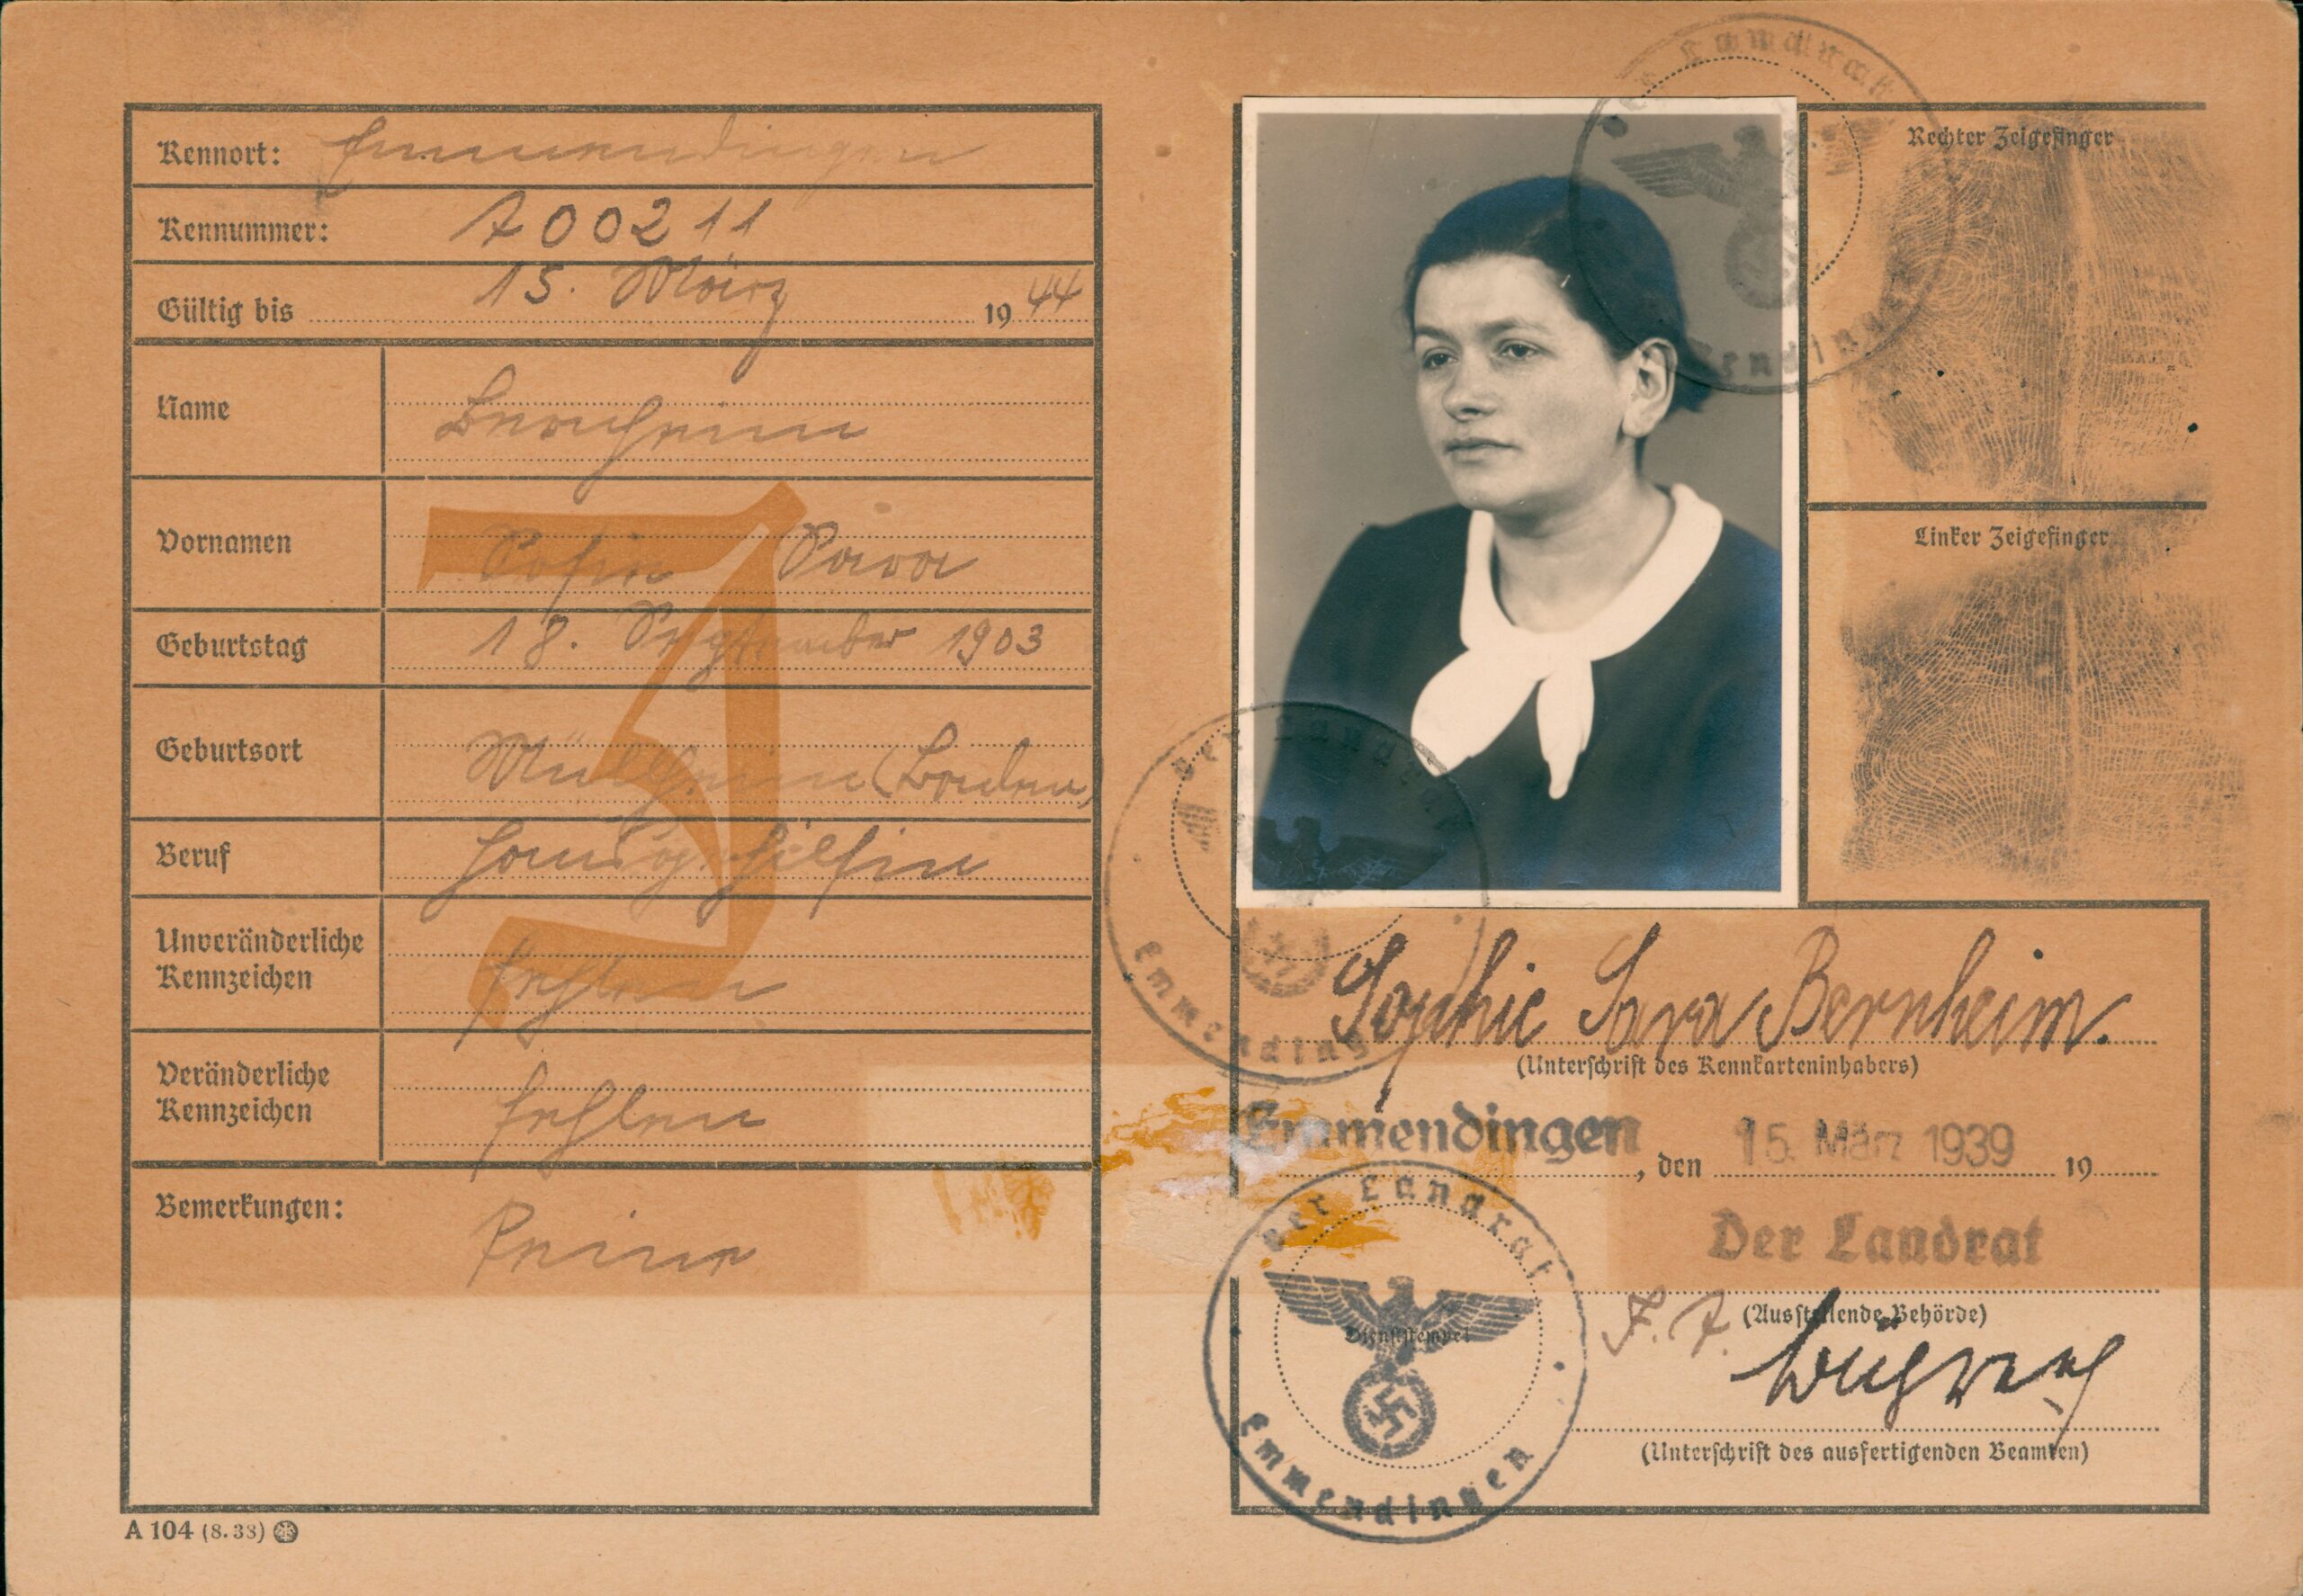 Kennort: Emmendingen
Kennummer: A00211
Gültig bis 15. März 1944
Name Bernheim
Vornamen Sofie Sara
Geburtstag 18. September 1903
Geburtsort Müllheim (Baden)
Beruf Hausgehilfin
Unveränderliche
Kennzeichen fehlen
Veränderliche
Kennzeichen fehlen
Bemerkungen: Keine
J
A 104 (8. 38)
Der Landrat
Emmendingen
Rechter Zeigefinger
Linker Zeigefinger
Der Landrat
Emmendingen
Sophie Sara Bernheim.
(Unterschrift des Kennkarteninhabers)
Emmendingen, den 15. März 1939 19
Der Landrat
(Ausstellende Behörde)
J. A.
(Unterschrift des ausfertigenden Beamten)
Der Landrat
Dienststempel
Emmendingen